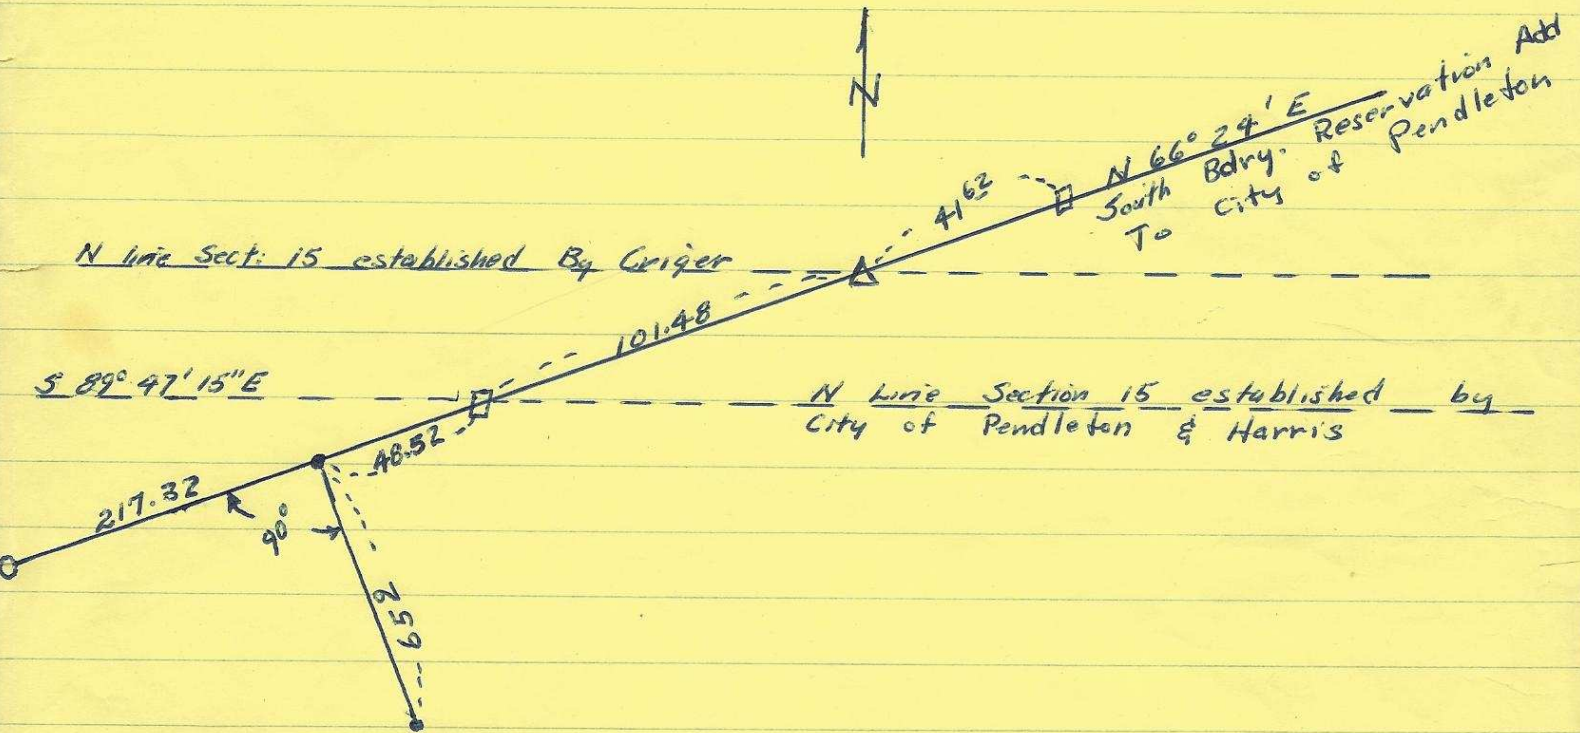 N
N 66° 24' E
South Bdry. Reservation Add
To City of Pendleton
41 62
N line Sect. 15 established By Criger
101.48
S 89° 47' 15" E
N Line Section 15 established by
City of Pendleton & Harris
48.52
217.32
90°
652